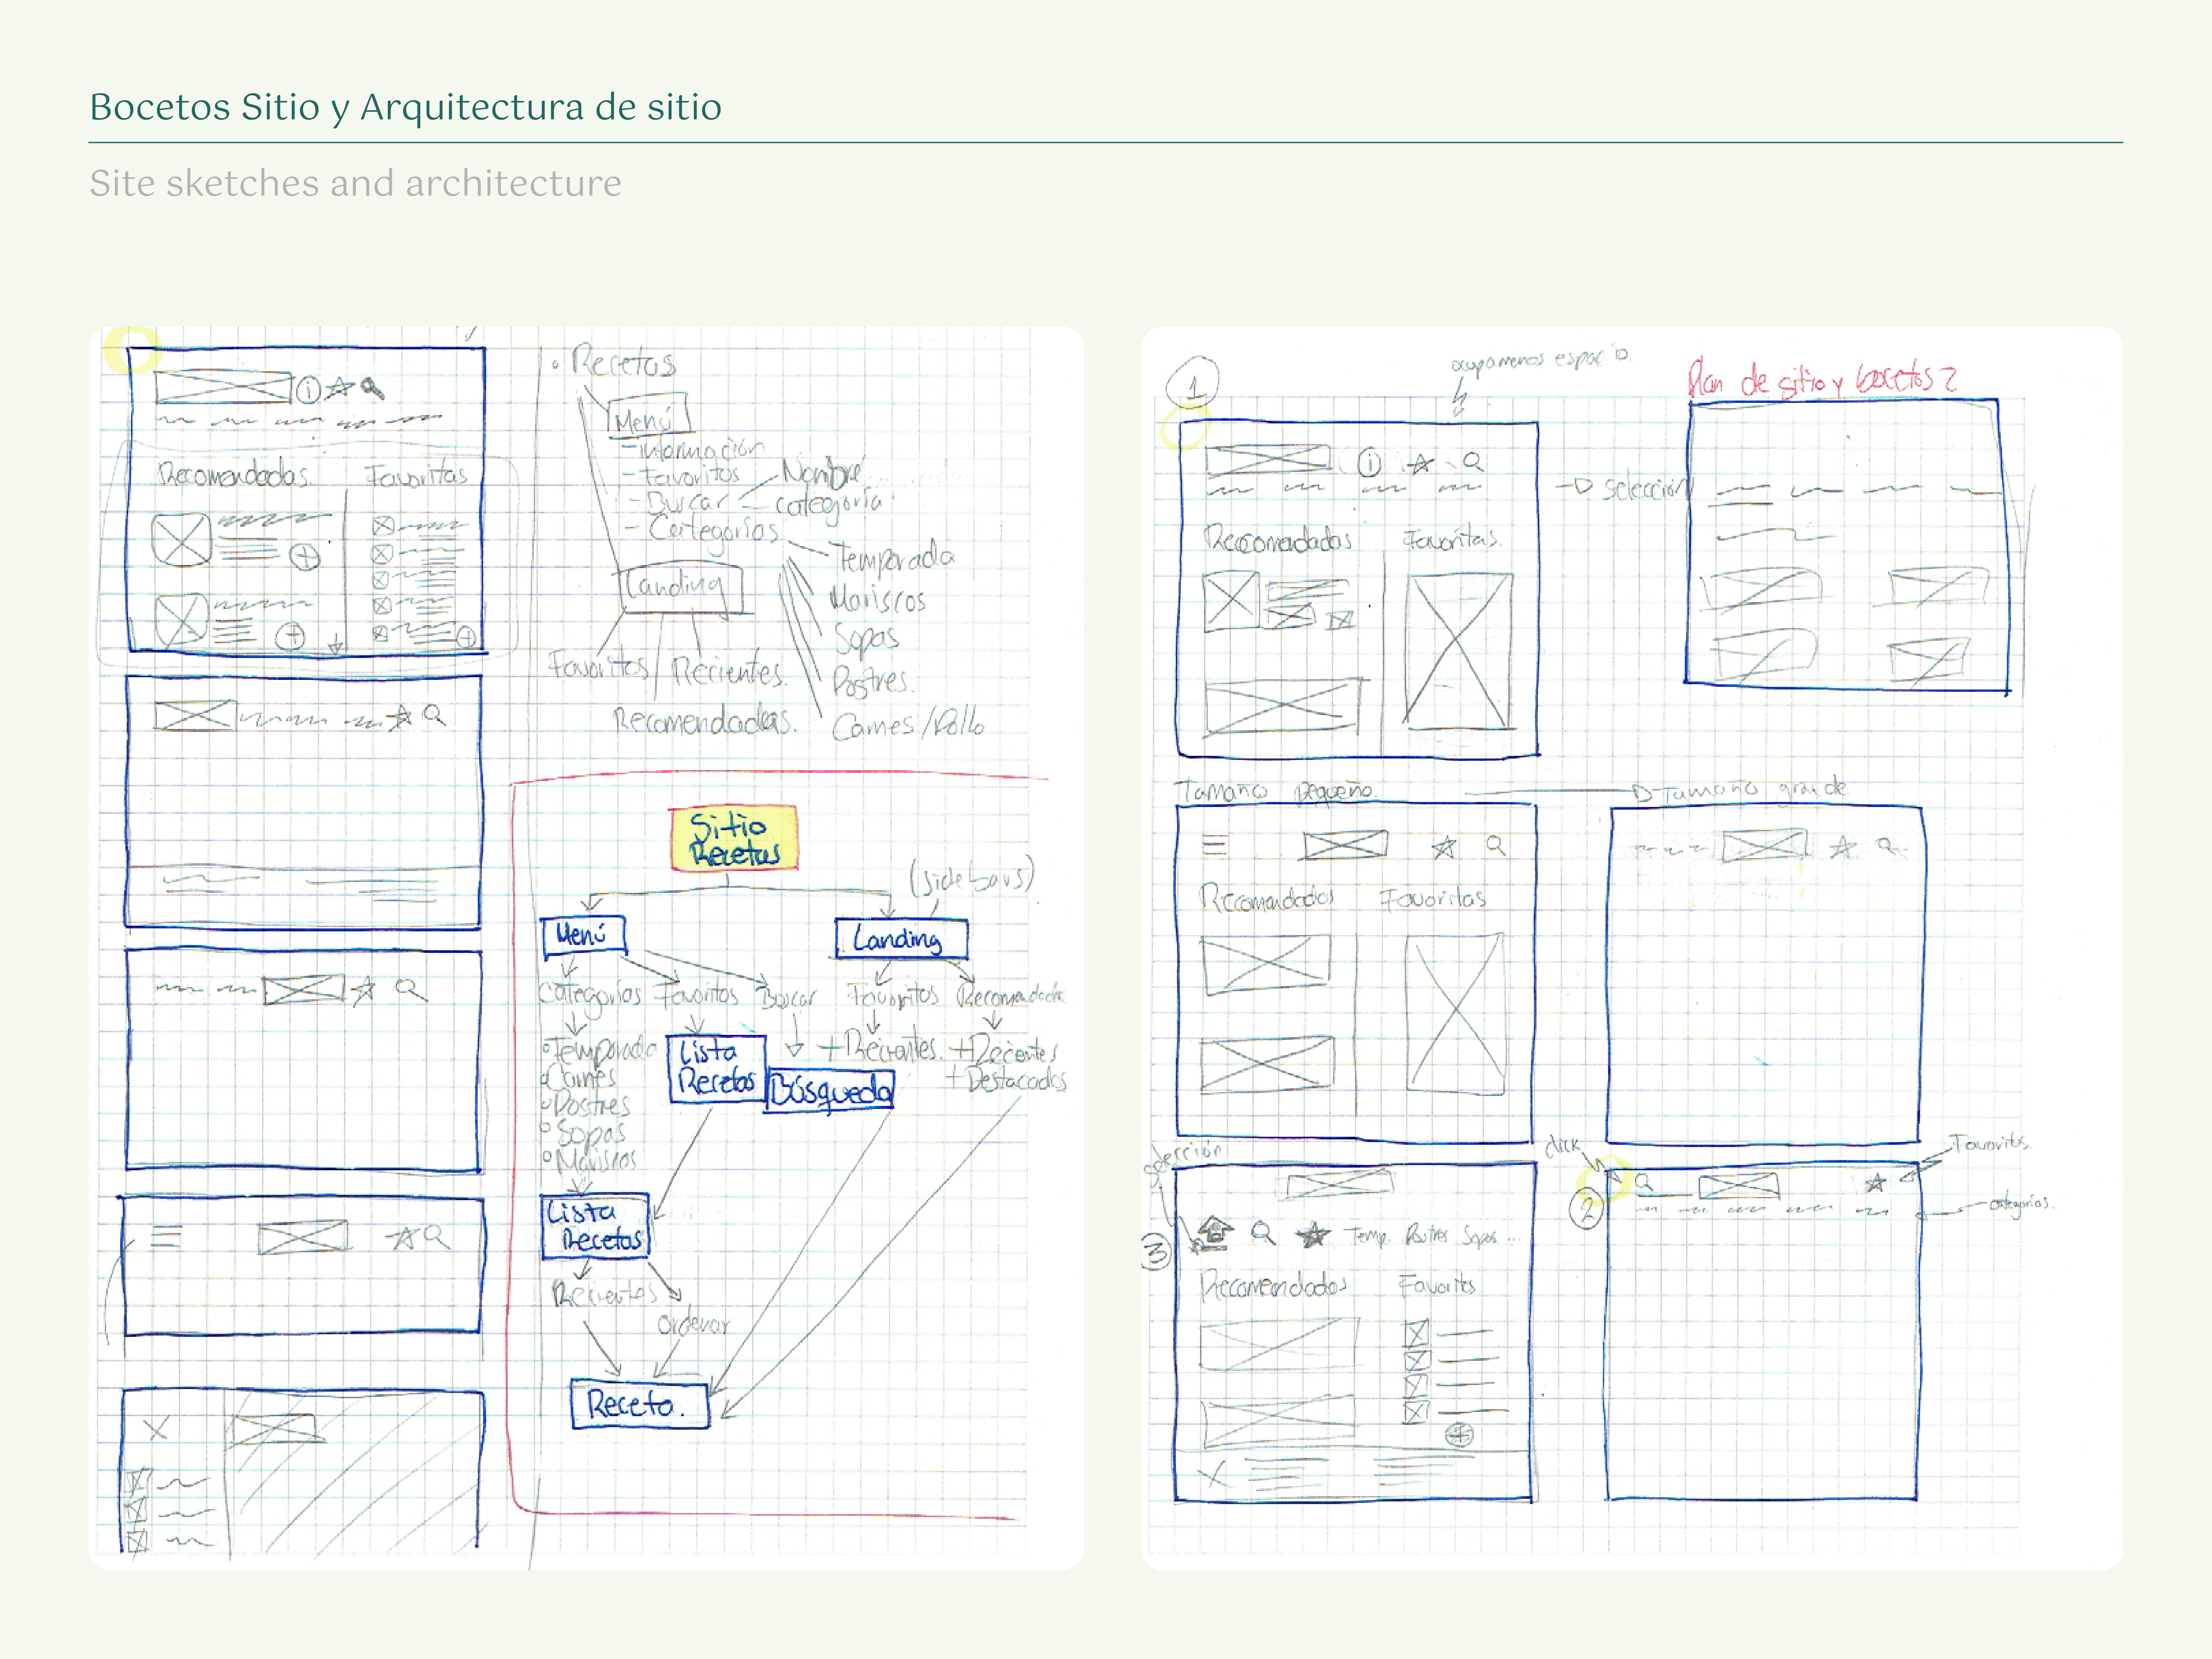 Bocetos Sitio y Arquitectura de sitio
Site sketches and architecture
Recomendados
Favoritas
Recetas
Menú
- Información
- Favoritos
- Buscar
- Categorías
Nombre
categoría
Temporada
Mariscos
Sopas
Postres.
Carnes/Pollo
Landing
Favoritos
Recientes.
Recomendadas.
Sitio
Recetas
(sidebars)
Menú
Landing
Categorías
Favoritos
Buscar
Favoritos
Recomendados
Temporada
Carnes
Postres
Sopas
Mariscos
Lista
Recetas
Búsqueda
+ Recientes.
+ Recientes
+ Destacados
Lista
Recetas
Recientes
ordenar
Receta.
1
ocupa menos espacio
Plan de sitio y bocetos 2
Recomendados
Favoritas.
selección
Tamaño pequeño.
Tamaño grande
Recomendados
Favoritas
selección
click
2
Favoritos
categorías.
3
Temp. Postres Sopas ...
Recomendados
Favorits